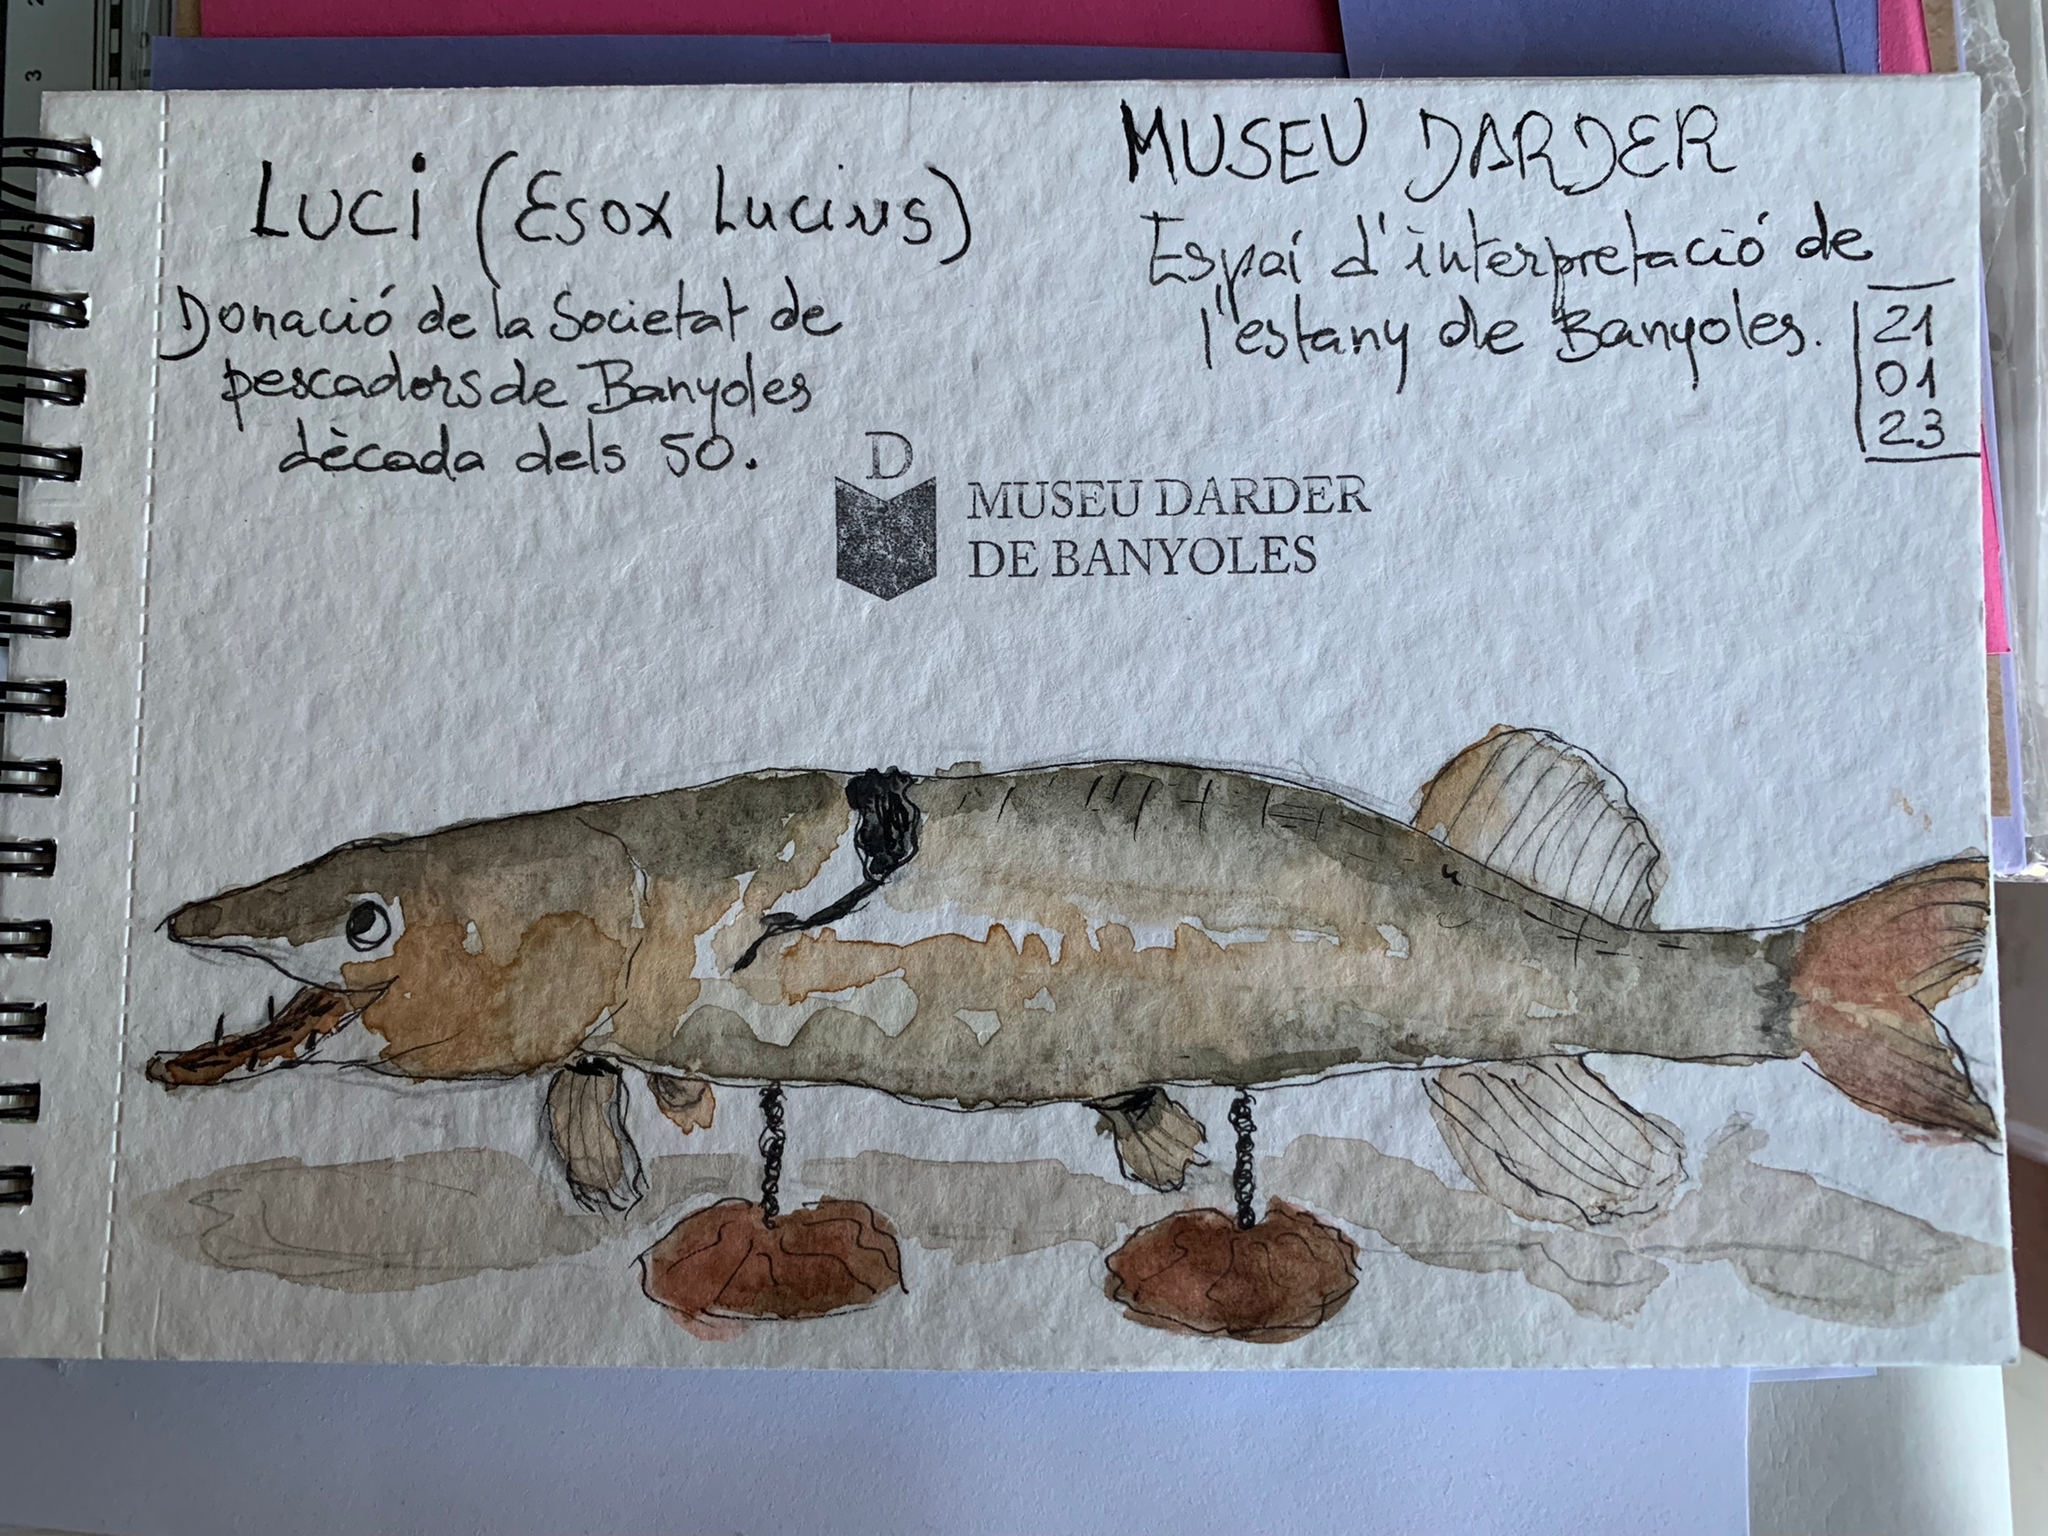 LUCI (Esox Lucius)
Donació de la Societat de
pescadors de Banyoles
dècada dels 50.
MUSEU DARDER
Espai d'interpretació de
l'estany de Banyoles.
21
01
23
D
MUSEU DARDER
DE BANYOLES